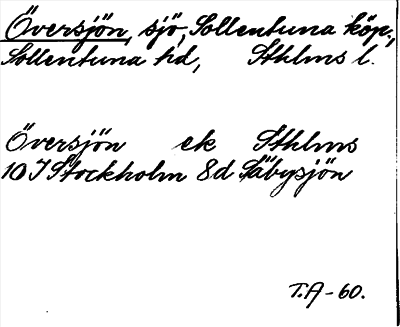 Översjön, sjö, Sollentuna köp.,
Sollentuna hd, Sthlms l.
Översjön ek Sthlms
10 I Stockholm 8d Säbysjön
T.A-60.